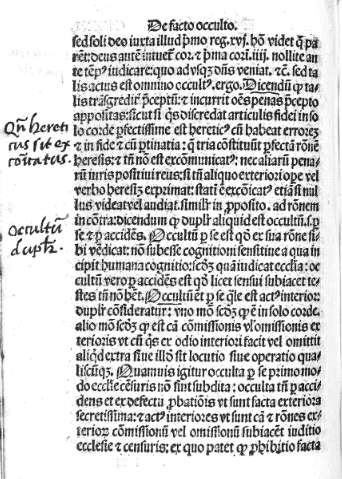 De facto occulto.
sed soli deo iuxta illud p̄mo reg. xvj. hō videt q̄ pa
rēt: deus autē intuet̉ coꝛ. ⁊ p̄ma coꝛi. iiij. nollite an
te tēp⁹ iudicare: quo adusqꝫ dn̄s veniat. ⁊c̄. sed ta
lis actus est omnino occult⁹. ergo. Dicendū ꝙ ta
lis trāsgredit̉ p̄ceptū: ⁊ incurrit oēs penas p̄cepto
appositas: sicut si q̄s discredat articulis fidei in so
lo corde ꝑfectissime est heretic⁹ cū habeat errorez
Qn̄ hereti
cus sit ex
cōicatus.
⁊ in fide ⁊ cū ꝑtinatia: q̄ tria cōstituūt ꝑfectā rōnē
heresis: ⁊ tn̄ nō est excommunicat⁹: nec aliarū pena
rū iuris positiui reus: si tn̄ aliquo exteriori ope vel
verbo heresiz exprimat: statī ē excōicat⁹ etiā si nul
lus videat vel audiat. similr̄ in ꝓposito. ad rōnem
in cōtra: dicendum ꝙ duplr̄ aliquid est occultū. s. ꝑ
Occultū
duplr̄.
se ⁊ ꝑ accidēs. Occultū ꝑ se est qd̄ ex sua rōne si
bi vēdicat: nō subesse cognitioni sensitiue a qua in
cipit humana cognitio: scd̄z quā iudicat ecclīa: oc
cultū vero ꝑ accidēs est qd̄ licet sensui subiacet te
stes tn̄ nō hēt. Occultū et ꝑ se q̄le est act⁹ interior:
duplr̄ cōsideratur: vno mō scd̄z ꝙ ē in solo corde.
alio mō scd̄z ꝙ est cā cōmissionis vl̓ omissionis ex
terioris vt cū q̄s ex odio interiori facit vel omittit
aliqd̄ extra siue illd̄ sit locutio siue operatio qua/
liscūqꝫ. Quamuis igitur occulta ꝑ se primo mo/
do ecclīe cēsuris nō sint subdita: occulta tn̄ ꝑ acci/
dens et ex defectu ꝓbatiōis vt sunt facta exteriora
secretissima: ⁊ act⁹ interiores vt sunt cā ⁊ rōnes ex/
terioꝝ cōmissionū vel omissionū subiacēt iuditio
ecclesie ⁊ censuris: ex quo patet ꝙ ꝓhibitio facta